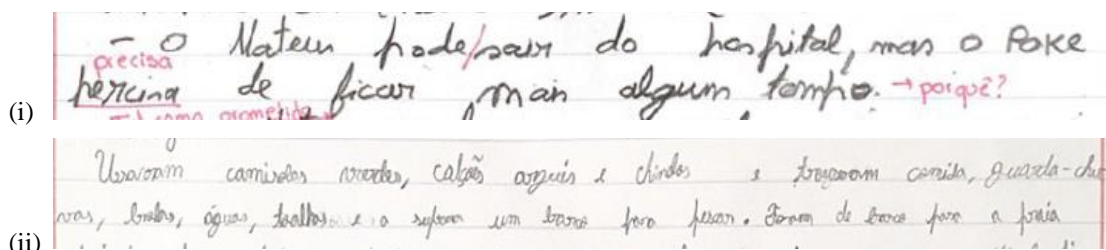 - O Mateus pode/sair do hospital, mas o Poke
precisa
percina de ficar mais algum tempo. → porquê?
(i)
- como prometido
Usavam camisolas verdes, calções azuis e chinelos e trouxeram comida, guarda-chu
vas, bolas, águas, toalhas e a um barco para pescar. Foram de barco para a praia
(ii)